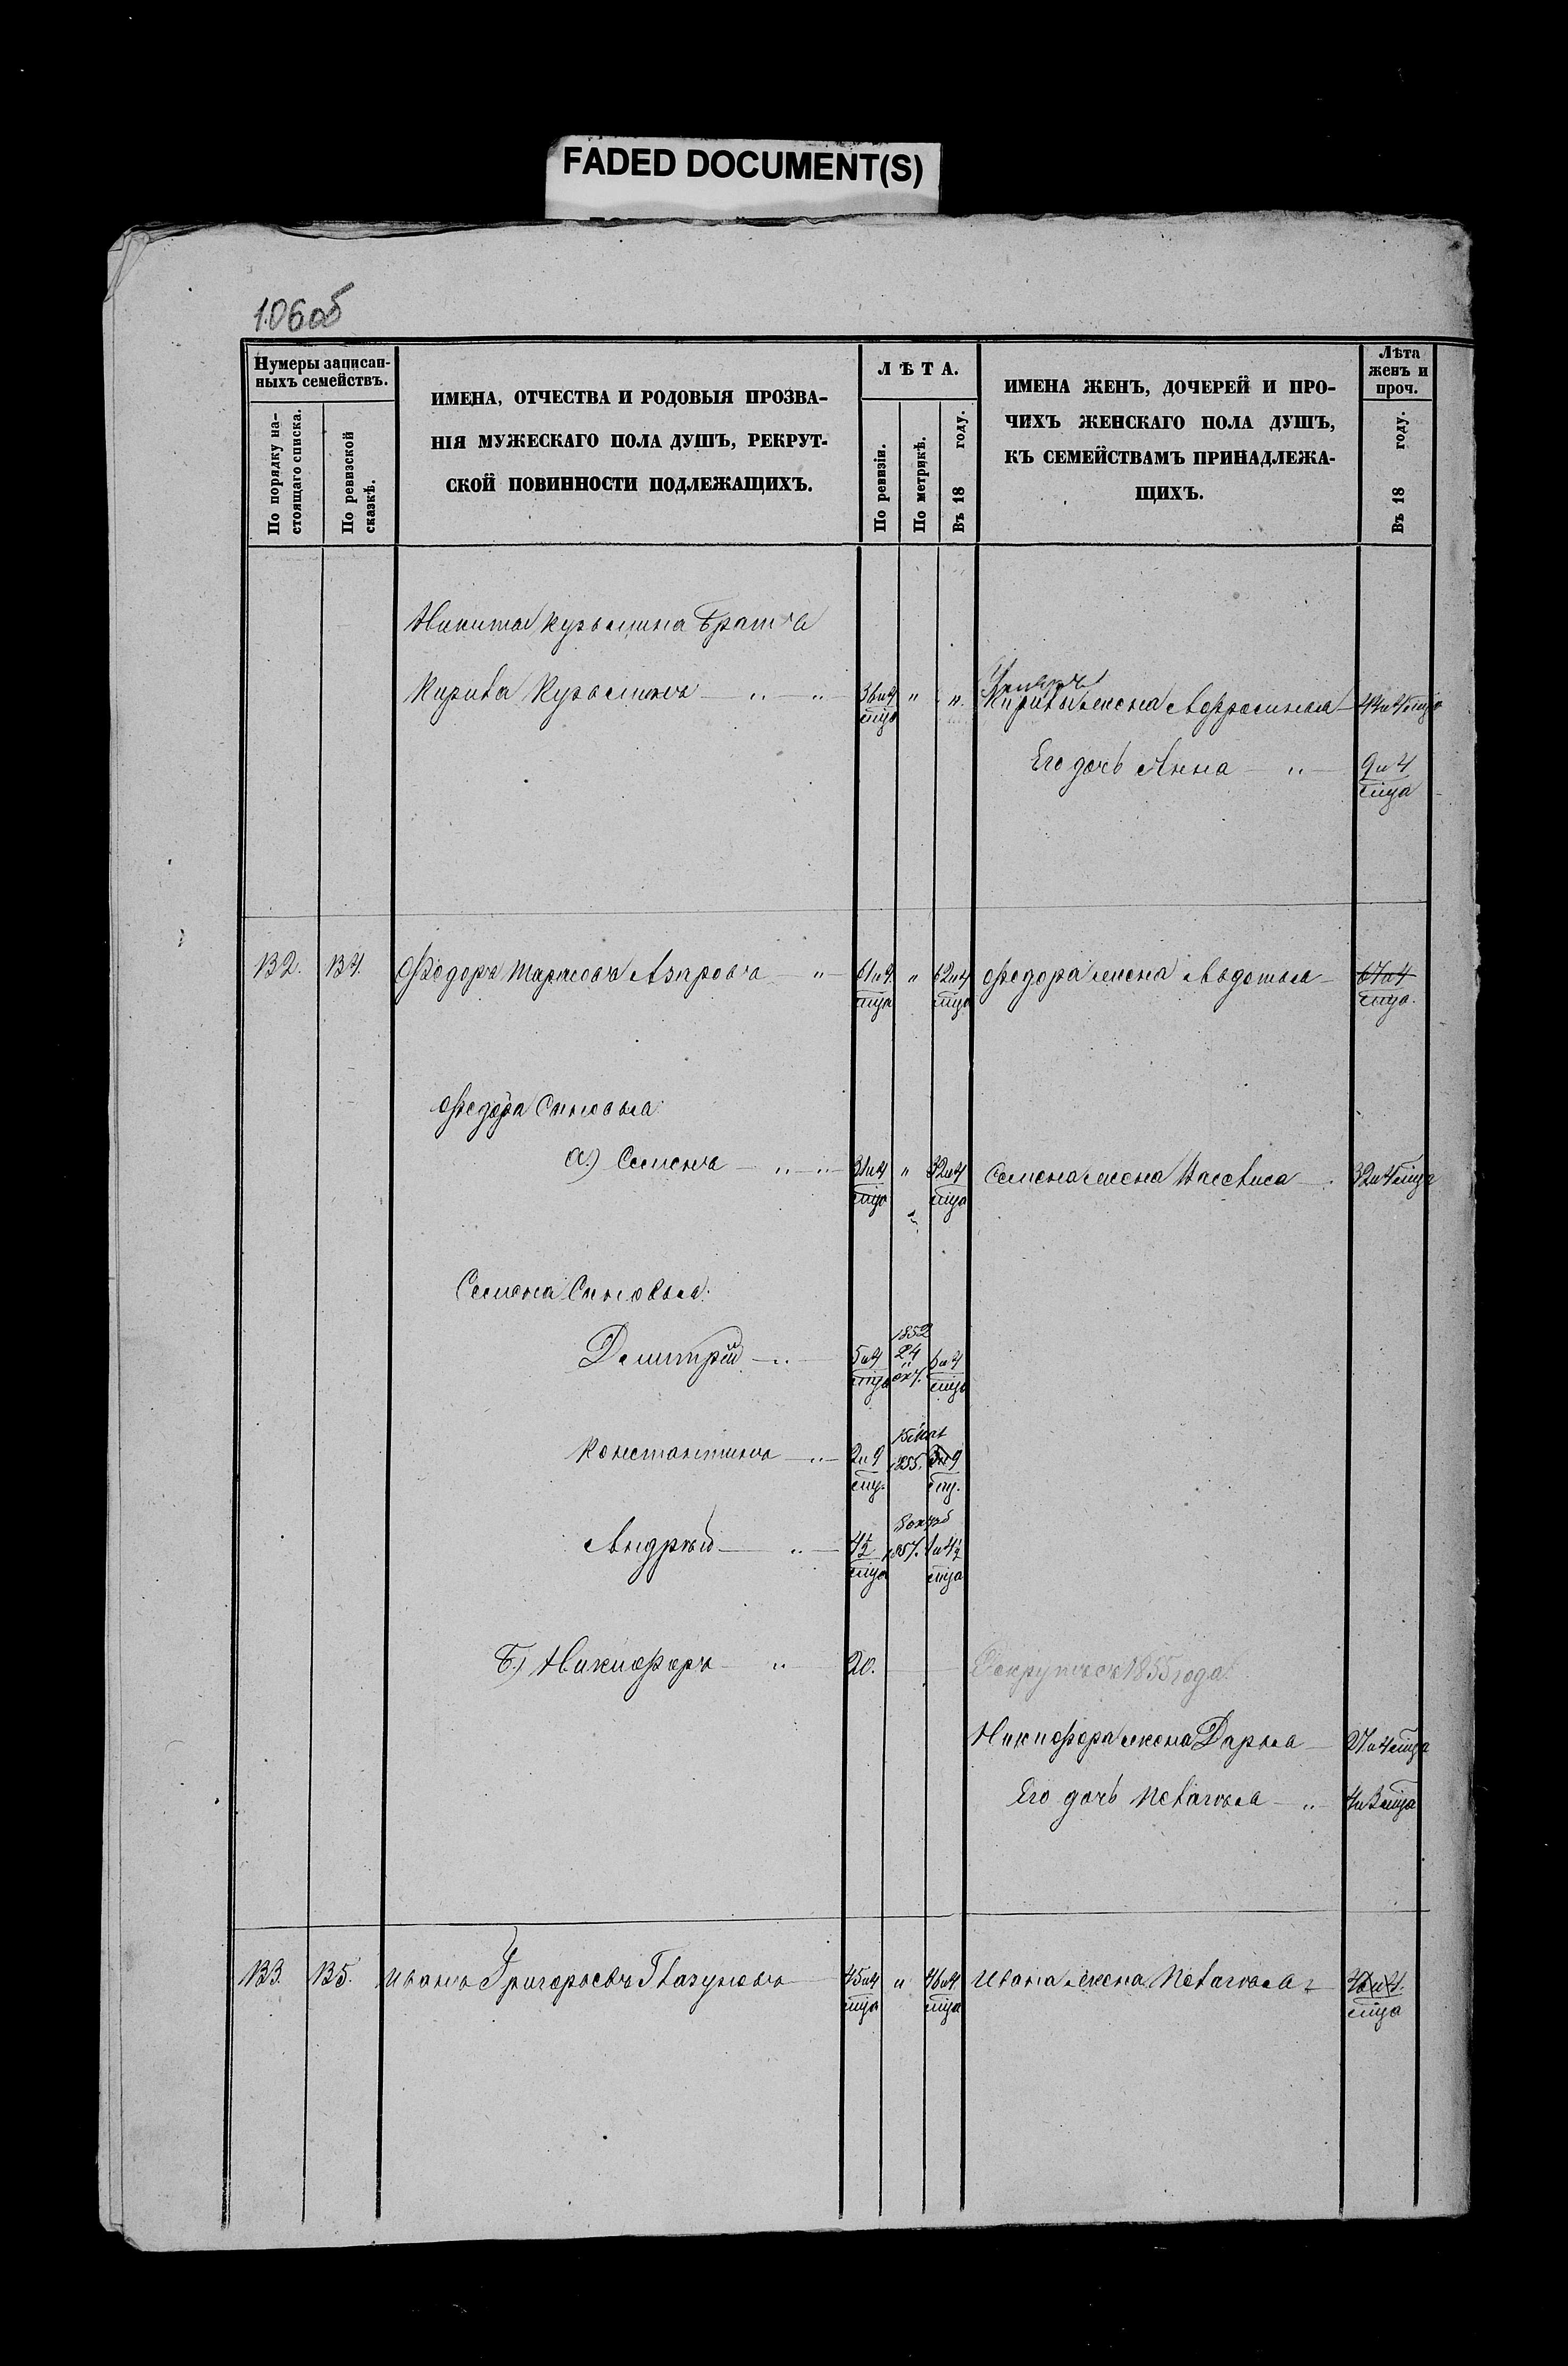 FADED DOCUMENT(S)
106об
Нумеры записан-
ныхъ семействъ.
По порядку на-
стоящаго списка.
По ревизской
сказкѣ.
ИМЕНА, ОТЧЕСТВА И РОДОВЫЯ ПРОЗВА-
НІЯ МУЖЕСКАГО ПОЛА ДУШЪ, РЕКРУТ-
СКОЙ ПОВИННОСТИ ПОДЛЕЖАЩИХЪ.
ЛѢТА.
По ревизіи.
По метрикѣ.
Въ 18 году.
ИМЕНА ЖЕНЪ, ДОЧЕРЕЙ И ПРО-
ЧИХЪ ЖЕНСКАГО ПОЛА ДУШЪ,
КЪ СЕМЕЙСТВАМЪ ПРИНАДЛЕЖА-
ЩИХЪ.
Лѣта
женъ и
проч.
Въ 18 году.
Никита Кузьмина Братъ
Кирила Кузьминъ " " 36 и 4 мца " "
Кирилы жена Афросинья
Его дочь Анна " 9 и 4 мца
132. 134. Ѳедоръ Азаровъ " 61 и 4 мца " 62 и 4 мца Федора жена Авдотья 67 и 4 мца.
Федора Сыновья:
а.) Семенъ " " 31 и 4 мца " 32 и 4 мца Семена жена Василиса 32 и 4 мца
Семена Сыновья:
Дмитрій " 5 и 4 мца 1852 24 окт. 6 и 4 мца
Константинъ " 2 и 9 мц. 15 1855. 3 и 9 мц.
Андрей " 4½ мца 1857. 1 и 4½ мца
Б.) Никифоръ " 20. 1855 года
Никифора жена Дарья 27 и 4 мца
Его дочь Пелагея " 4 и 3 мца
133. 135. Иванъ Григорьевъ Глазуновъ 45 и 4 мца " 46 и 4 мца Ивана жена Пелагея 46 и 4. мца